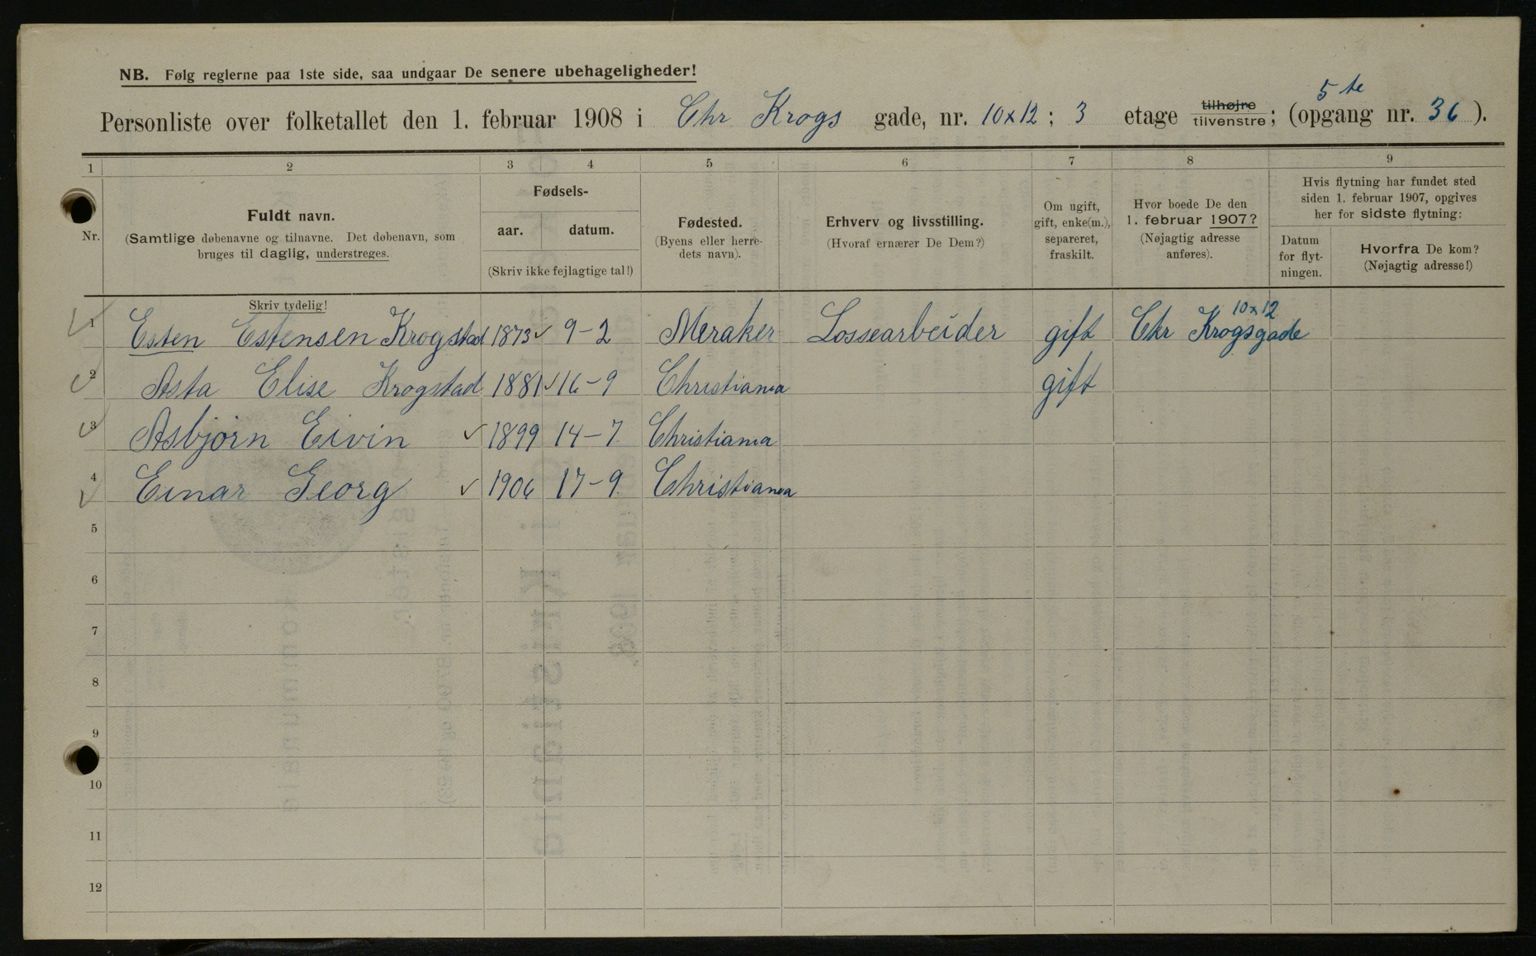 NB. Følg reglerne paa 1ste side, saa undgaar De senere ubehageligheder!
5te
Personliste over folketallet den 1. februar 1908 i Chr Krogs gade, nr. 10x12; 3 etage tilhøjre tilvenstre; (opgang nr. 36).
1 2 3 4 5 6 7 8 9
Nr.
Fuldt navn.
(Samtlige døbenavne og tilnavne. Det døbenavn, som
bruges til daglig, understreges.
Skriv tydelig!
Fødsels-
aar. datum.
(Skriv ikke fejlagtige tal!)
Fødested.
(Byens eller herre-
dets navn).
Erhverv og livsstilling.
(Hvoraf ernærer De Dem?)
Om ugift,
gift, enke(m.),
separeret,
fraskilt.
Hvor boede De den
1. februar 1907?
(Nøjagtig adresse
anføres).
Hvis flytning har fundet sted
siden 1. februar 1907, opgives
her for sidste flytning:
Datum
for flyt-
ningen.
Hvorfra De kom?
(Nøjagtig adresse!)
10x12
1 Esten Estensen Krogstad 1873 9-2 Meraker Lossearbeider gift Chr Krogsgade
2 Asta Elise Krogstad 1881 16-9 Christiania gift
3 Asbjørn Eivin 1899 14-7 Christiania
4 Einar Georg 1906 17-9 Christiania
5
6
7
8
9
10
11
12